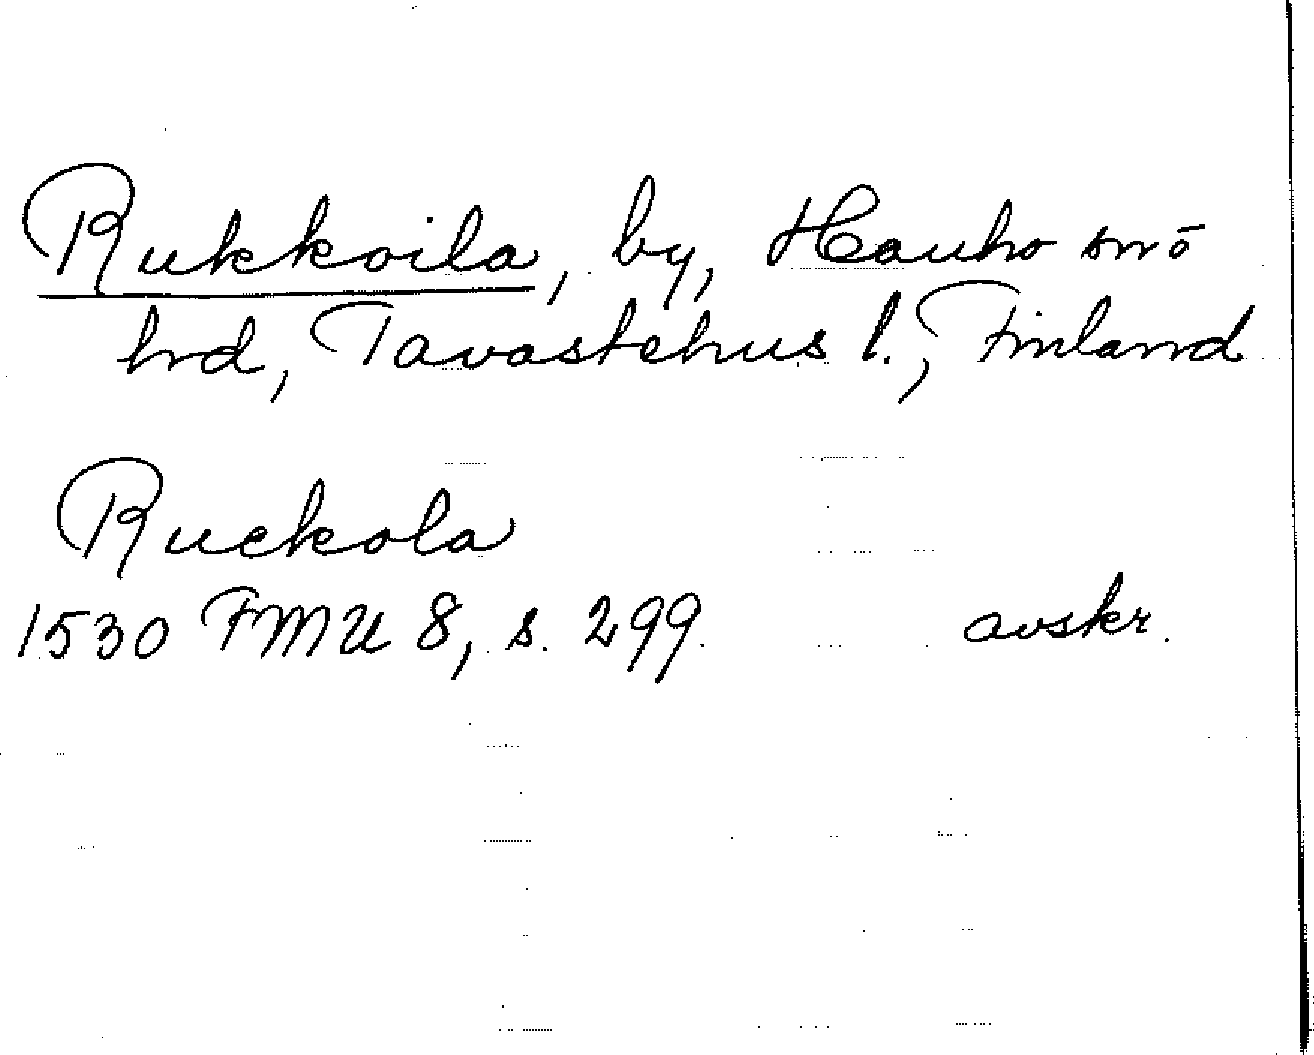 Rukkoila, by, Hauho snō
hrd, Tavastehus l., Finland
Ruckola
1530 FMU 8, s. 299. avskr.